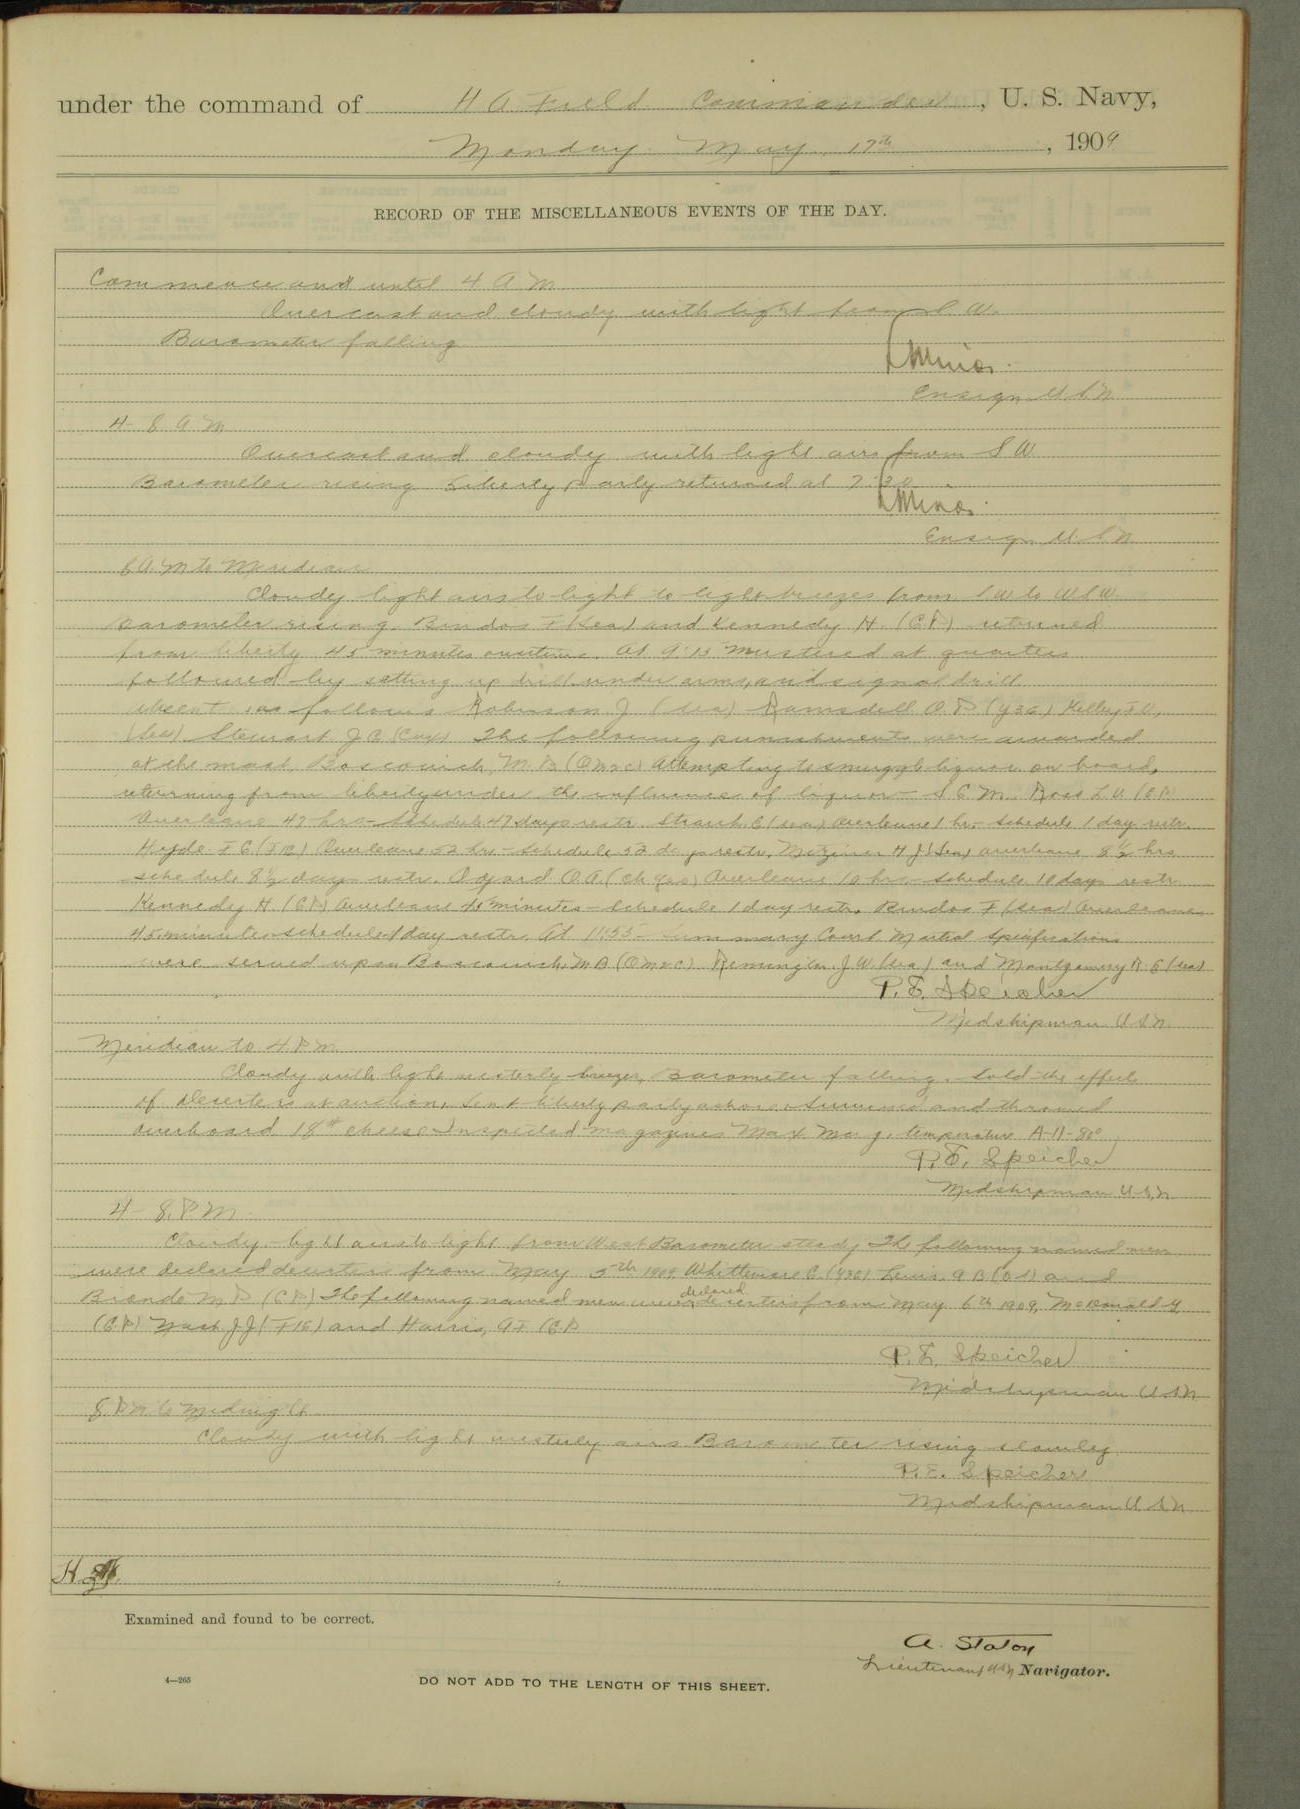 under the command of H A Field Commander, U. S. Navy,
Monday May 17th, 1909
RECORD OF THE MISCELLANEOUS EVENTS OF THE DAY.
Commence and until 4 A M
Overcast and cloudy with light from S W.
Barometer falling
L Minor
Ensign U S N
4-8 A M
Overcast and cloudy with light airs from S W
Barometer rising Liberty party returned at 7:30
L Minor
Ensign U.S.N
8 A.M to Meridian
Cloudy light airs to light to light breezes from SW to WSW
Barometer rising. Bindos F (Sea) and Kennedy H. (C.P.) returned
from liberty 45 minutes overtime. At 9:15 Mustered at quarters
followed by setting up drill under arms, and signal drill
Absent as follows Robinson J (Sea) Ramsdell O. P (Y3c) Kelley
(Sea) Stewart J C (Cox) The following punishments were awarded
at the mast. Boscovich, M. B (OM2C) Attempting to smuggle liquor on board,
returning from liberty under the influence of liquor - S C M. Ross L U (C.P.)
Overleave 47 hrs - Schedule 47 days restr. Straub E (Sea) Overleave 1 hr. - schedule 1 day restr.
Hyde F G Overleave 52 hrs - Schedule 52 days restr. H J (Sea) overleave 8½ hrs
schedule 8½ days restr. O A. Overleave 10 hrs - schedule 10 days restr
Kennedy H. (C.P.) Overleave 45 minutes - Schedule 1 day restr. Bindos F (Sea) Overleave
45 minutes schedule 1 day restr. At 11:55 - Summary Court Martial Specifications
were served upon Boscovich M B (OM2C) Remington J W (Sea) and Montgomery R. G (Sea)
P. E. Speicher
Midshipman U.S.N.
Meridian to 4 P M
Cloudy with light westerly breezes, Barometer falling. Sold the effects
of deserters at auction. Sent liberty party ashore. Surveyed and throwed
overboard 18# cheese Inspected magazines Max. Mag. temperature A-11-80°
P. E. Speicher
Midshipman U.S.N
4-8. P M.
Cloudy - light airs to light from West Barometer steady The following named men
were declared deserters from May 5th 1909, Whittemore C. (Y3c) Lewis A B (OS) and
M P (C.P.) The following named men were declared deserters from May 6th 1909, McDonald G
(C.P.) Nash J J and Harris, A F (C.P.
P. E. Speicher
Midshipman U.S.N.
8 P.M. to Midnight
Cloudy with light westerly airs Barometer rising slowly
P. E. Speicher
Midshipman U.S.N
Examined and found to be correct.
A. Staton
Lieutenant USN Navigator.
4—265
DO NOT ADD TO THE LENGTH OF THIS SHEET.